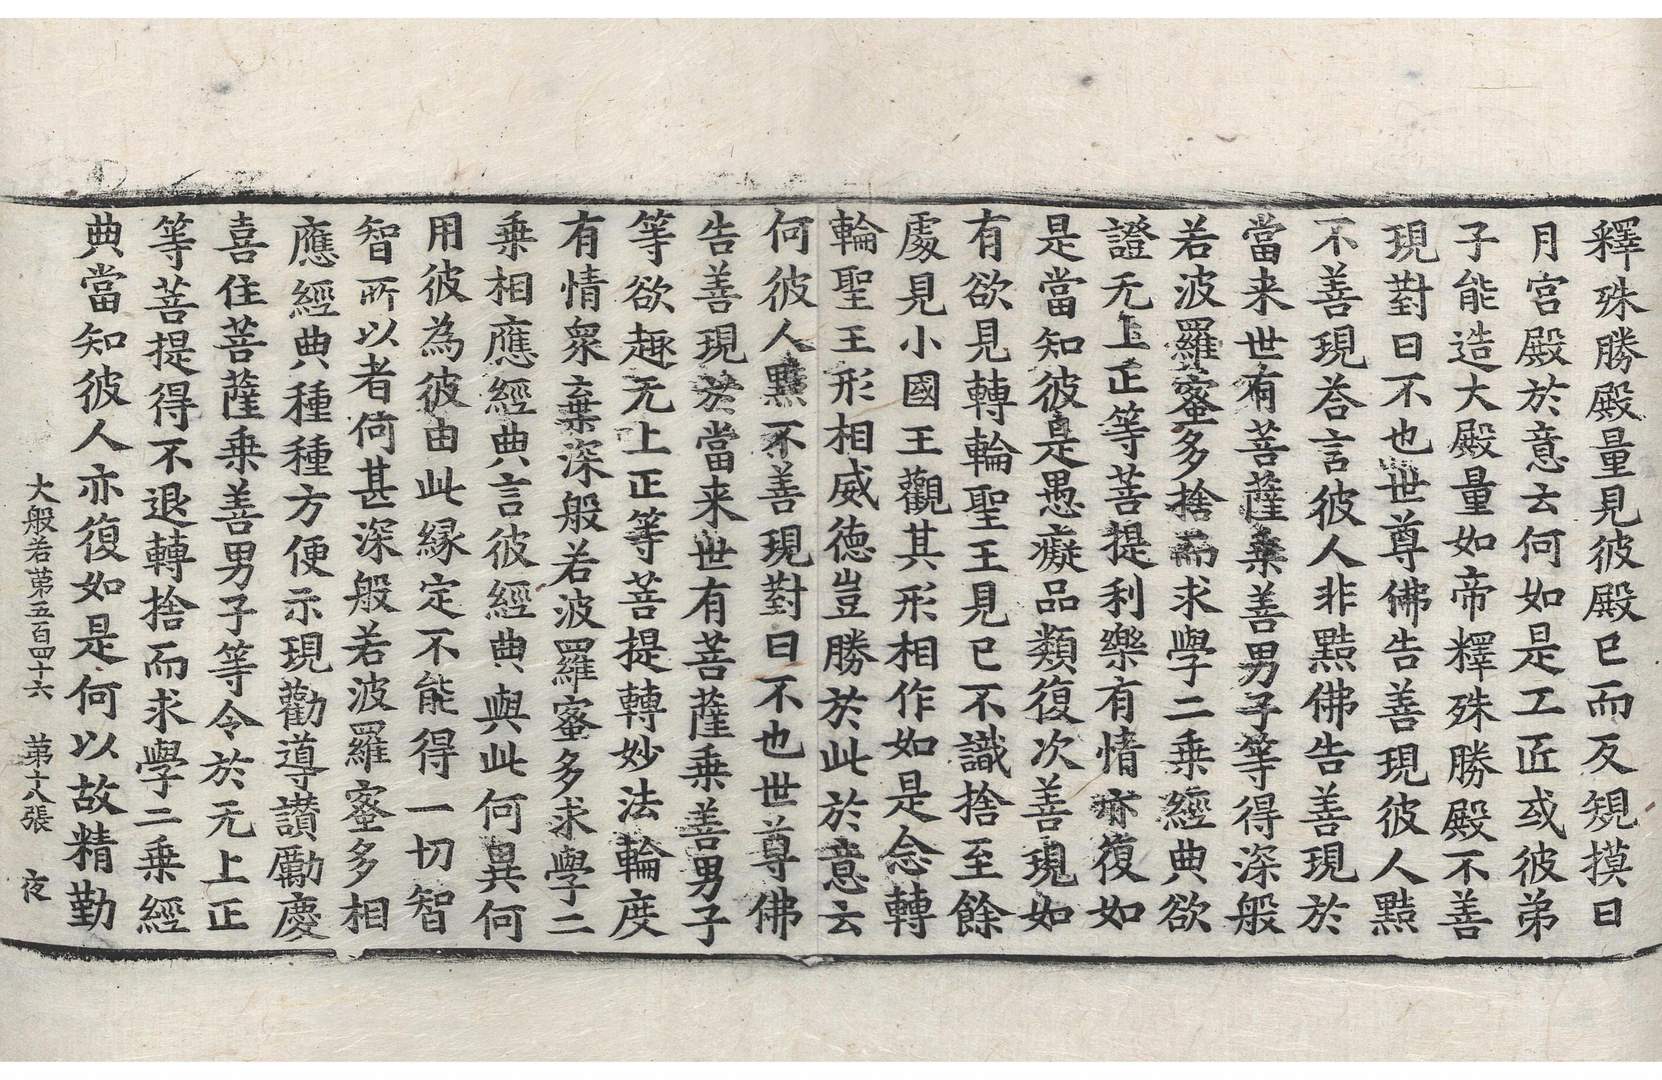 釋殊勝殿量見彼殿已而反䂓摸日
月宮殿於意云何如是工匠或彼弟
子能造大殿量如帝釋殊勝殿不善
現對曰不也世尊佛告善現彼人黠
不善現荅言彼人非黠佛告善現於
當来世有菩薩乗善男子等得深般
若波羅蜜多捨而求學二乗經典欲
證无上正等菩提利樂有情亦復如
是當知彼是愚癡品類復次善現如
有欲見轉輪聖王見已不識捨至餘
處見小國王觀其形相作如是念轉
輪聖王形相威德豈勝於此於意云
何彼人黠不善現對曰不也世尊佛
告善現於當来世有菩薩乗善男子
等欲趣无上正等菩提轉妙法輪度
有情衆棄深般若波羅蜜多求學二
乗相應經典言彼經典與此何異何
用彼為彼由此縁定不能得一切智
智所以者何甚深般若波羅蜜多相
應經典種種方便示現勸導讃勵慶
喜住菩薩乗善男子等令於无上正
等菩提得不退轉捨而求學二乗經
典當知彼人亦復如是何以故精勤
大般若第五百四十六 第十八張 夜